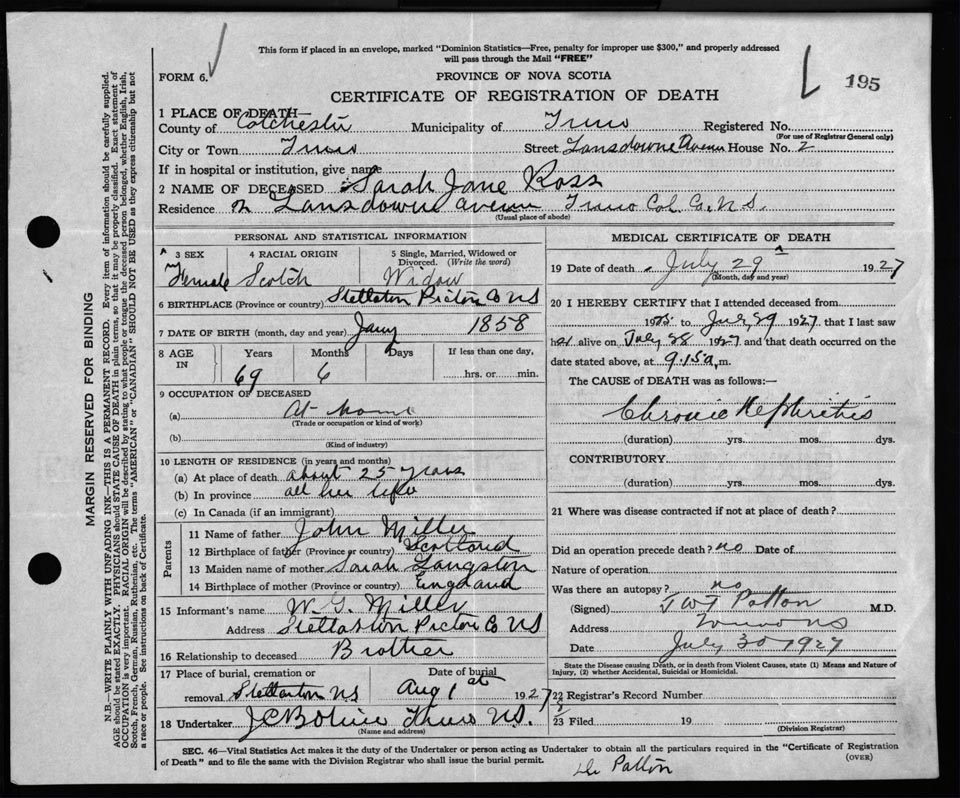 This form if placed in an envelope, marked "Dominion Statistics—Free, penalty for improper use $300," and properly addressed
will pass through the Mail "FREE"
FORM 6.
PROVINCE OF NOVA SCOTIA
195
CERTIFICATE OF REGISTRATION OF DEATH
1 PLACE OF DEATH—
County of Colchester Municipality of Truro Registered No.
(For use of Registrar General only)
City or Town Truro Street Lansdowne Avenue House No. 2
If in hospital or institution, give name
2 NAME OF DECEASED Sarah Jane Ross
Residence Lansdowne avenue Truro Col. Co. N.S.
(Usual place of abode)
PERSONAL AND STATISTICAL INFORMATION
3 SEX 4 RACIAL ORIGIN 5 Single, Married, Widowed or
Divorced. (Write the word)
Female Scotch Widow
6 BIRTHPLACE (Province or country) Stellarton Pictou Co NS
7 DATE OF BIRTH (month, day and year) Jany 1858
8 AGE IN Years Months Days If less than one day,
69 6 hrs. or min.
9 OCCUPATION OF DECEASED
(a) At home
(Trade or occupation or kind of work)
(b)
(Kind of industry)
10 LENGTH OF RESIDENCE (in years and months)
(a) At place of death about 25 years
(b) In province all her life
(c) In Canada (if an immigrant)
Parents
11 Name of father John Miller
12 Birthplace of father (Province or country) Scotland
13 Maiden name of mother Sarah Langston
14 Birthplace of mother (Province or country) England
15 Informant's name W. G. Miller
Address Stellarton Pictou Co NS
16 Relationship to deceased Brother
17 Place of burial, cremation or Date of burial
removal Stellarton N.S. Aug 1st 1927
18 Undertaker Truro N.S.
(Name and address)
MEDICAL CERTIFICATE OF DEATH
19 Date of death July 29 1927
(Month, day and year)
20 I HEREBY CERTIFY that I attended deceased from
1925 to July 29 1927 that I last saw
her alive on July 28 1927 and that death occurred on the
date stated above, at 9.15 a.m.
The CAUSE OF DEATH was as follows:—
Chronic Nephritis
(duration) yrs. mos. dys.
CONTRIBUTORY
(duration) yrs. mos. dys.
21 Where was disease contracted if not at place of death?
Did an operation precede death? no Date of
Nature of operation
Was there an autopsy? no
(Signed) Patton M.D.
Address Truro NS
Date July 30 1927
State the Disease causing Death, or in death from Violent Causes, state (1) Means and Nature of
Injury, (2) whether Accidental, Suicidal or Homicidal.
22 Registrar's Record Number
23 Filed 19
(Division Registrar)
SEC. 46—Vital Statistics Act makes it the duty of the Undertaker or person acting as Undertaker to obtain all the particulars required in the "Certificate of Registration
of Death" and to file the same with the Division Registrar who shall issue the burial permit.
(OVER)
Dr Patton
MARGIN RESERVED FOR BINDING
N.B.—WRITE PLAINLY WITH UNFADING INK—THIS IS A PERMANENT RECORD. Every item of information should be carefully supplied.
AGE should be stated EXACTLY. PHYSICIANS should STATE CAUSE OF DEATH in plain terms, so that it may be properly classified. Exact statement of
OCCUPATION is very important. RACIAL ORIGIN will be described by stating to what people or tongue the deceased person belonged, whether English, Irish,
Scotch, French, German, Russian, Ruthenian, etc. The terms "AMERICAN" or "CANADIAN" SHOULD NOT BE USED as they express citizenship but not
a race or people. See instructions on back of Certificate.